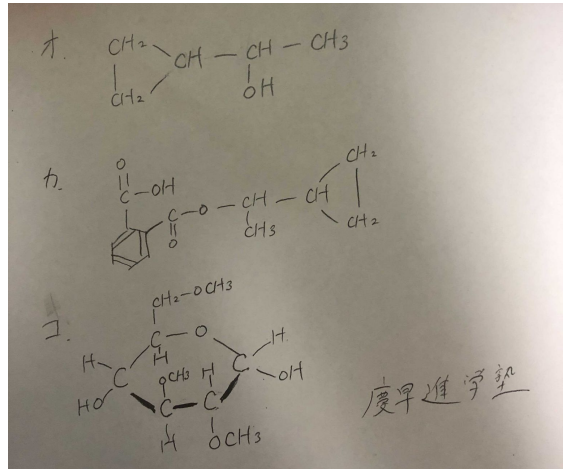 オ.
CH2 CH - CH - CH3
CH2 OH
カ.
O
C - OH
C - O - CH - CH
O CH3
CH2
CH2
コ.
CH2-OCH3
C - O
H C H OCH3 H C H
HO C - C OH
H OCH3
慶早進学塾